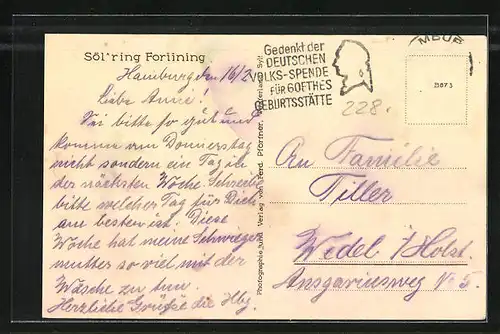 Söl'ring Foriining
Hamburg, den 16/2.
Liebe Anni!
Sei bitte so gut und
komme am Donnerstag
nicht sondern ein Tag in
der nächsten Woche. Schreibe
bitte welcher Tag für Dich
am besten ist. Diese
Woche hat meine Schwieger
mutter so viel mit der
Wäsche zu tun.
Herzliche Grüße die Hbg.
Photographie und Verlag von Ferd. Pförtner, Westerland, Sylt
Gedenkt der
DEUTSCHEN
VOLKS-SPENDE
FÜR GOETHES
GEBURTSSTÄTTE
MBUR
228.
An Familie
Tiller
Wedel i/Holst.
Ansgariusweg No 5.